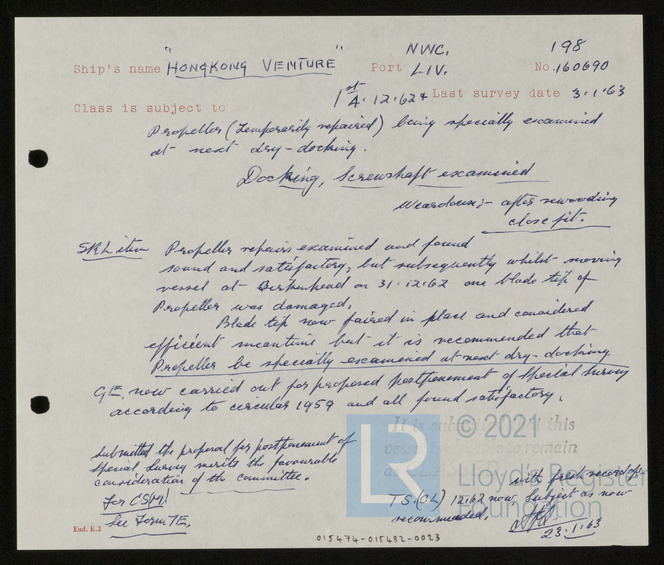 NWC. 198
Ship's name "HONGKONG VENTURE" Port LIV. No. 160690
1st A. 12.62 & Last survey date 3.1.63
Class is subject to
Propeller (temporarily repaired) being specially examined
at next dry-docking.
Docking, Screwshaft examined
Weardown:- after rewooding
close fit.
SRL item Propeller repairs examined and found
sound and satisfactory, but subsequently whilst moving
vessel at Birkenhead on 31.12.62 one blade tip of
Propeller was damaged.
Blade tip now faired in place and considered
efficient meantime but it is recommended that
Propeller be specially examined at next dry-docking.
G.E. now carried out for proposed postponement of Special Survey
according to circular 1959 and all found satisfactory.
It is submitted this
vessel to remain
Submitted the proposal for postponement of
Special Survey merits the favourable
consideration of the committee.
For CS(M)
See Form 7E.
with fresh record of
T.S.(CL) 12.62 now. Subject as now
recommended.
23.1.63
End. E.2
015474-015482-0023
LR
© 2021
Lloyd's Register
Foundation